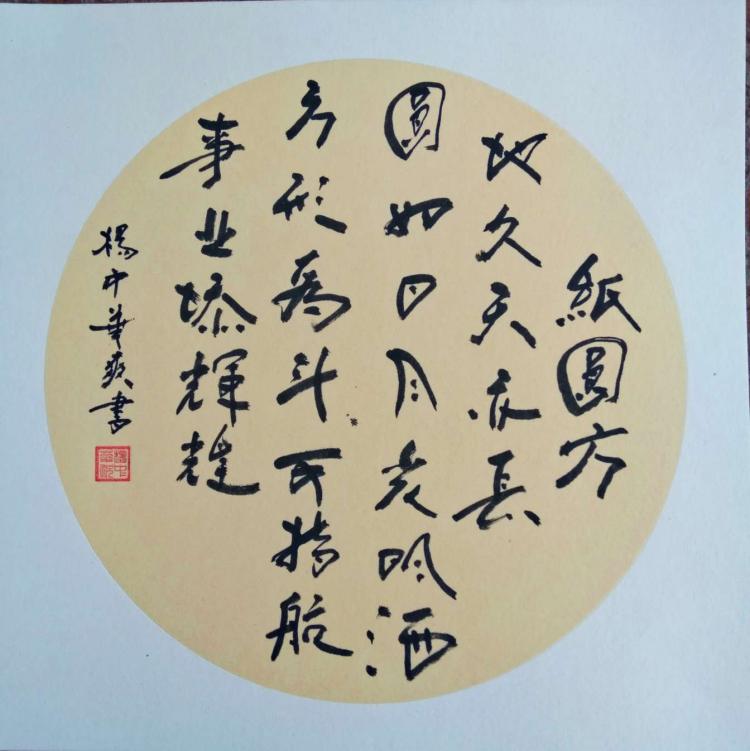 紙圓方
地久天亦長
圓如日月光明洒
方形爲斗可指航
事业添輝煌
楊中華爽書